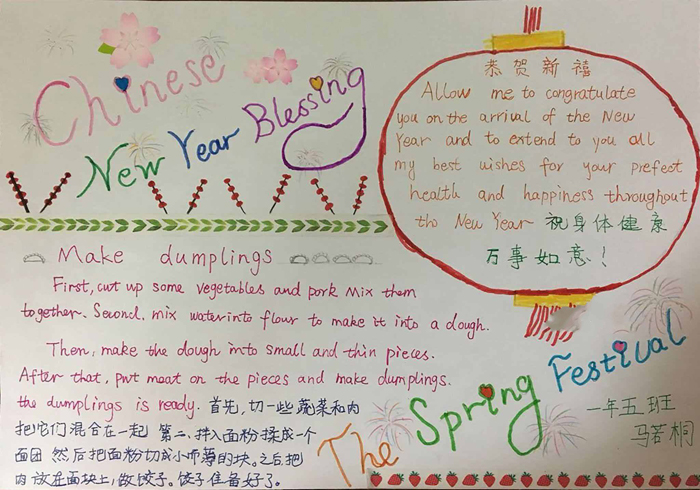 Chinese
New Year Blessing
恭贺新禧
Allow me to congratulate
you on the arrival of the New
Year and to extend to you all
my best wishes for your prefect
health and happiness throughout
tho New Year 祝身体健康
万事如意!
Make dumplings
First, cut up some vegetables and pork Mix them
together. Second, mix water into flour to make it into a dough.
Then, make the dough into small and thin pieces.
After that, put meat on the pieces and make dumplings.
the dumplings is ready. 首先,切一些蔬菜和肉
把它们混合在一起 第二、拌入面粉揉成一个
面团 然后把面粉切成小而薄的块。之后把
肉放在面块上,做饺子。饺子准备好了。
The Spring Festival
一年五班
马若桐